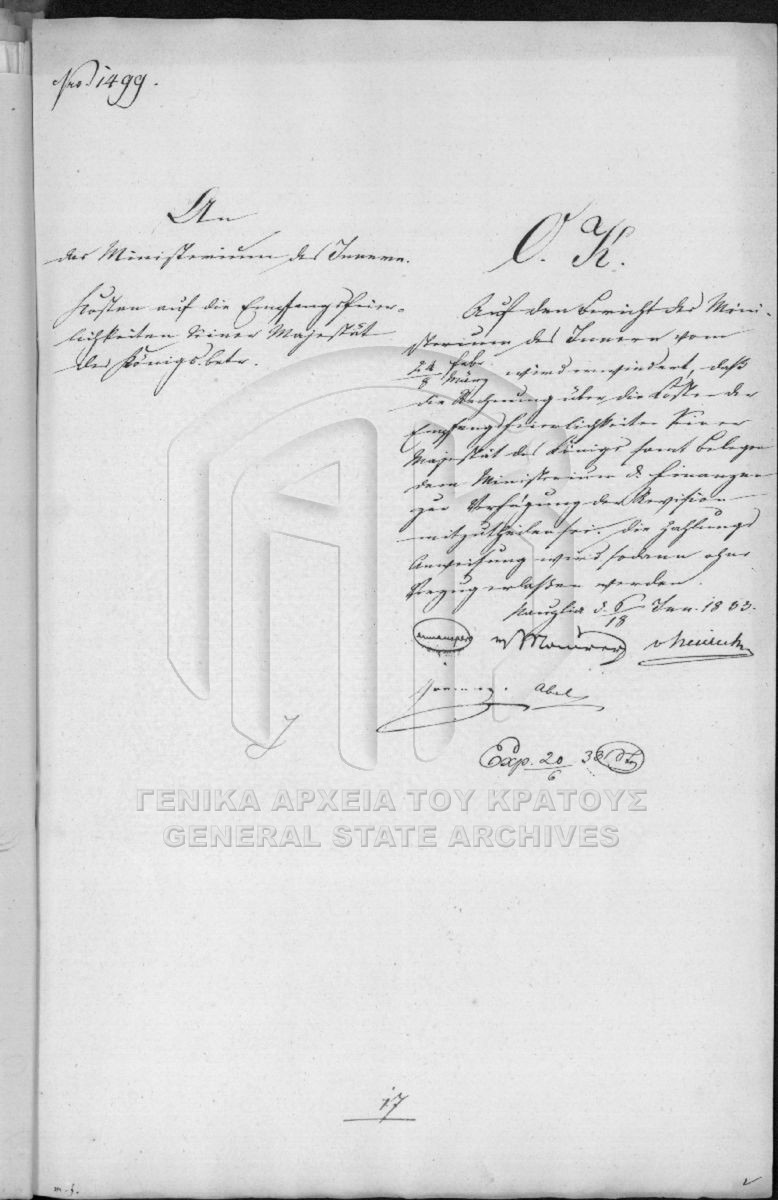 Nro. 1499.
An
das Ministerium des Innern.
Kosten auf die Empfangsfeier-
lichkeiten Seiner Majestät
des Königs betr.
O. K.
Auf den Bericht des Mini-
sterium des Innern vom
24 Febr. / 8 März wird erwiedert, daß
die Rechnung über die Kosten der
Empfangsfeierlichkeiten Seiner
Majestät des Königs samt Belegen
dem Ministerium d. Finanzen
zur Verfügung der Revision
mitzutheilen sei. Die Zahlungs
Anweisung wird sodann ohne
Verzug erlassen werden.
Nauplia d. 6/18 Jun. 1833.
Armansperg v Maurer v Heideck
Abel
Exp. 20/6 33
ΓΕΝΙΚΑ ΑΡΧΕΙΑ ΤΟΥ ΚΡΑΤΟΥΣ
GENERAL STATE ARCHIVES
17